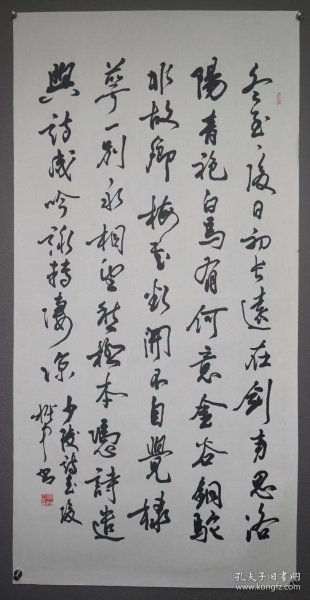 冬至々後日初长遠在劍南思洛
陽青袍白馬有何意金谷銅駝
非故鄉梅花欲開不自覺棣
萼一別永相望愁極本憑詩遣
興詩成吟詠轉凄凉
少陵詩至後
書
孔夫子旧书网